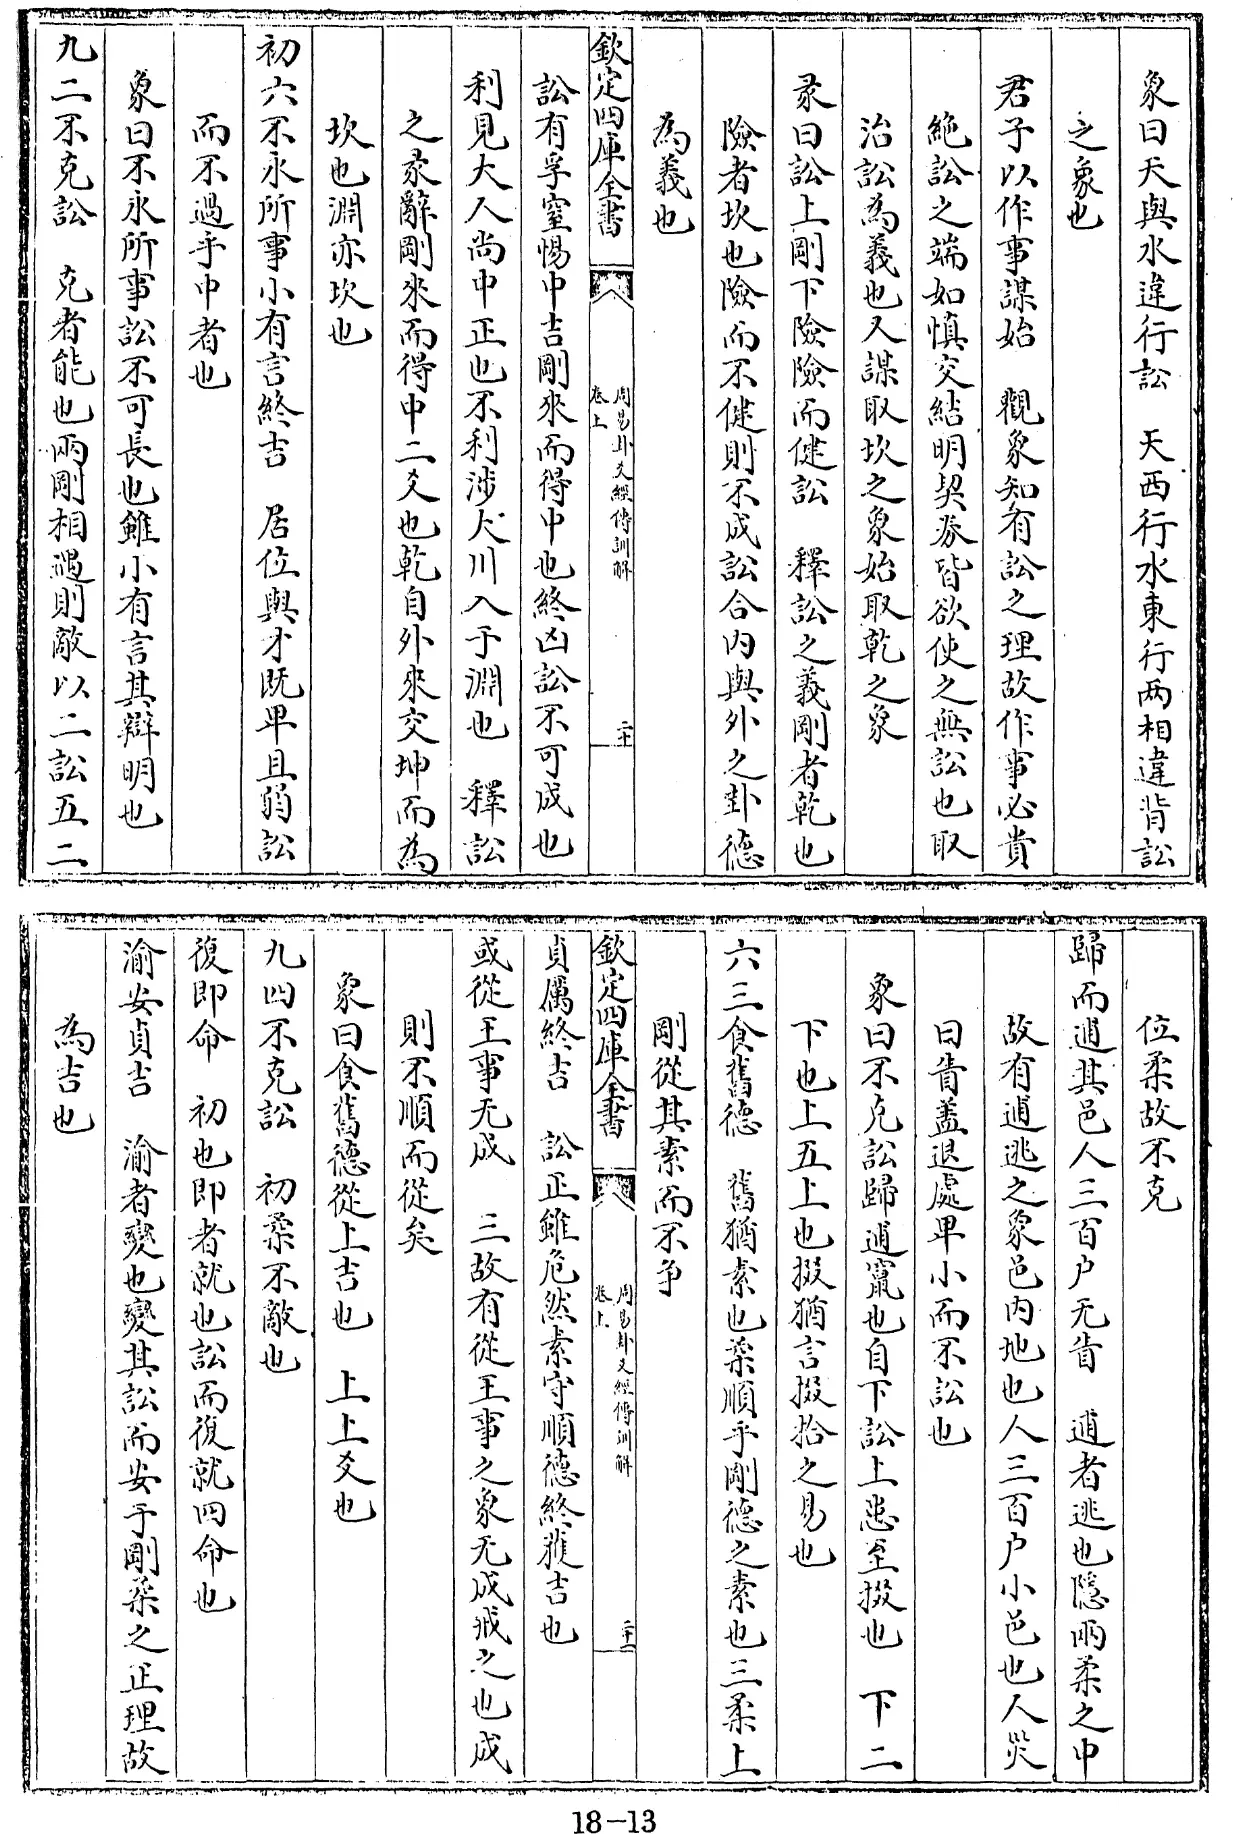 象曰天與水違行訟　天西行水東行两相違背訟
之象也
君子以作事謀始　觀象知有訟之理故作事必貴
絶訟之端如慎交結明契券皆欲使之無訟也取
治訟為義也又謀取坎之象始取乾之象
彖曰訟上剛下險險而健訟　釋訟之義剛者乾也
險者坎也險而不健則不成訟合内與外之卦德
為義也
欽定四庫全書
周易卦爻經傳訓解
卷上
二十
訟有孚窒惕中吉剛來而得中也終凶訟不可成也
利見大人尚中正也不利涉大川入于淵也　釋訟
之彖辭剛來而得中二爻也乾自外來交坤而為
坎也淵亦坎也
初六不永所事小有言終吉　居位與才既卑且弱訟
而不過乎中者也
象曰不永所事訟不可長也雖小有言其辯明也
九二不克訟　克者能也兩剛相遇則敵以二訟五二
位柔故不克
歸而逋其邑人三百户无眚　逋者逃也隱兩柔之中
故有逋逃之象邑内地也人三百户小邑也人災
曰眚盖退處卑小而不訟也
象曰不克訟歸逋竄也自下訟上患至掇也　下二
下也上五上也掇猶言掇拾之易也
六三食舊德　舊猶素也柔順乎剛德之素也三柔上
剛從其素而不争
欽定四庫全書
周易卦爻經傳訓解
卷上
二十一
貞厲終吉　訟正雖危然素守順德終獲吉也
或從王事无成　三故有從王事之象无成戒之也成
則不順而從矣
象曰食舊德從上吉也　上上爻也
九四不克訟　初柔不敵也
復即命　初也即者就也訟而復就四命也
渝安貞吉　渝者變也變其訟而安于剛柔之正理故
為吉也
18-13